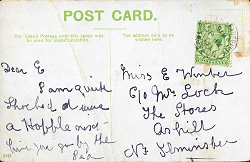 POST CARD.
For Inland Postage only this space may
be used for Communication.
The address only to be
written here.
Dear E
I am quite
shocked
a Hobble
you go by the
Miss E Winter
C/o Mr Loch
The Stores
Ashill
Nr Ilminster